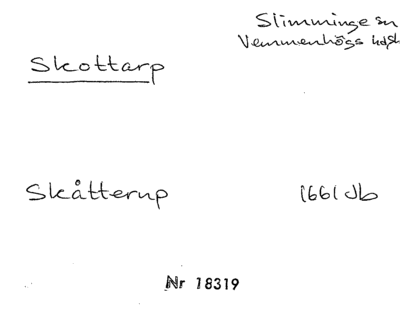 Slimminge sn
Vemmenhögs hd
Skottarp
Skåtterup 1661 Jb
Nr 18319